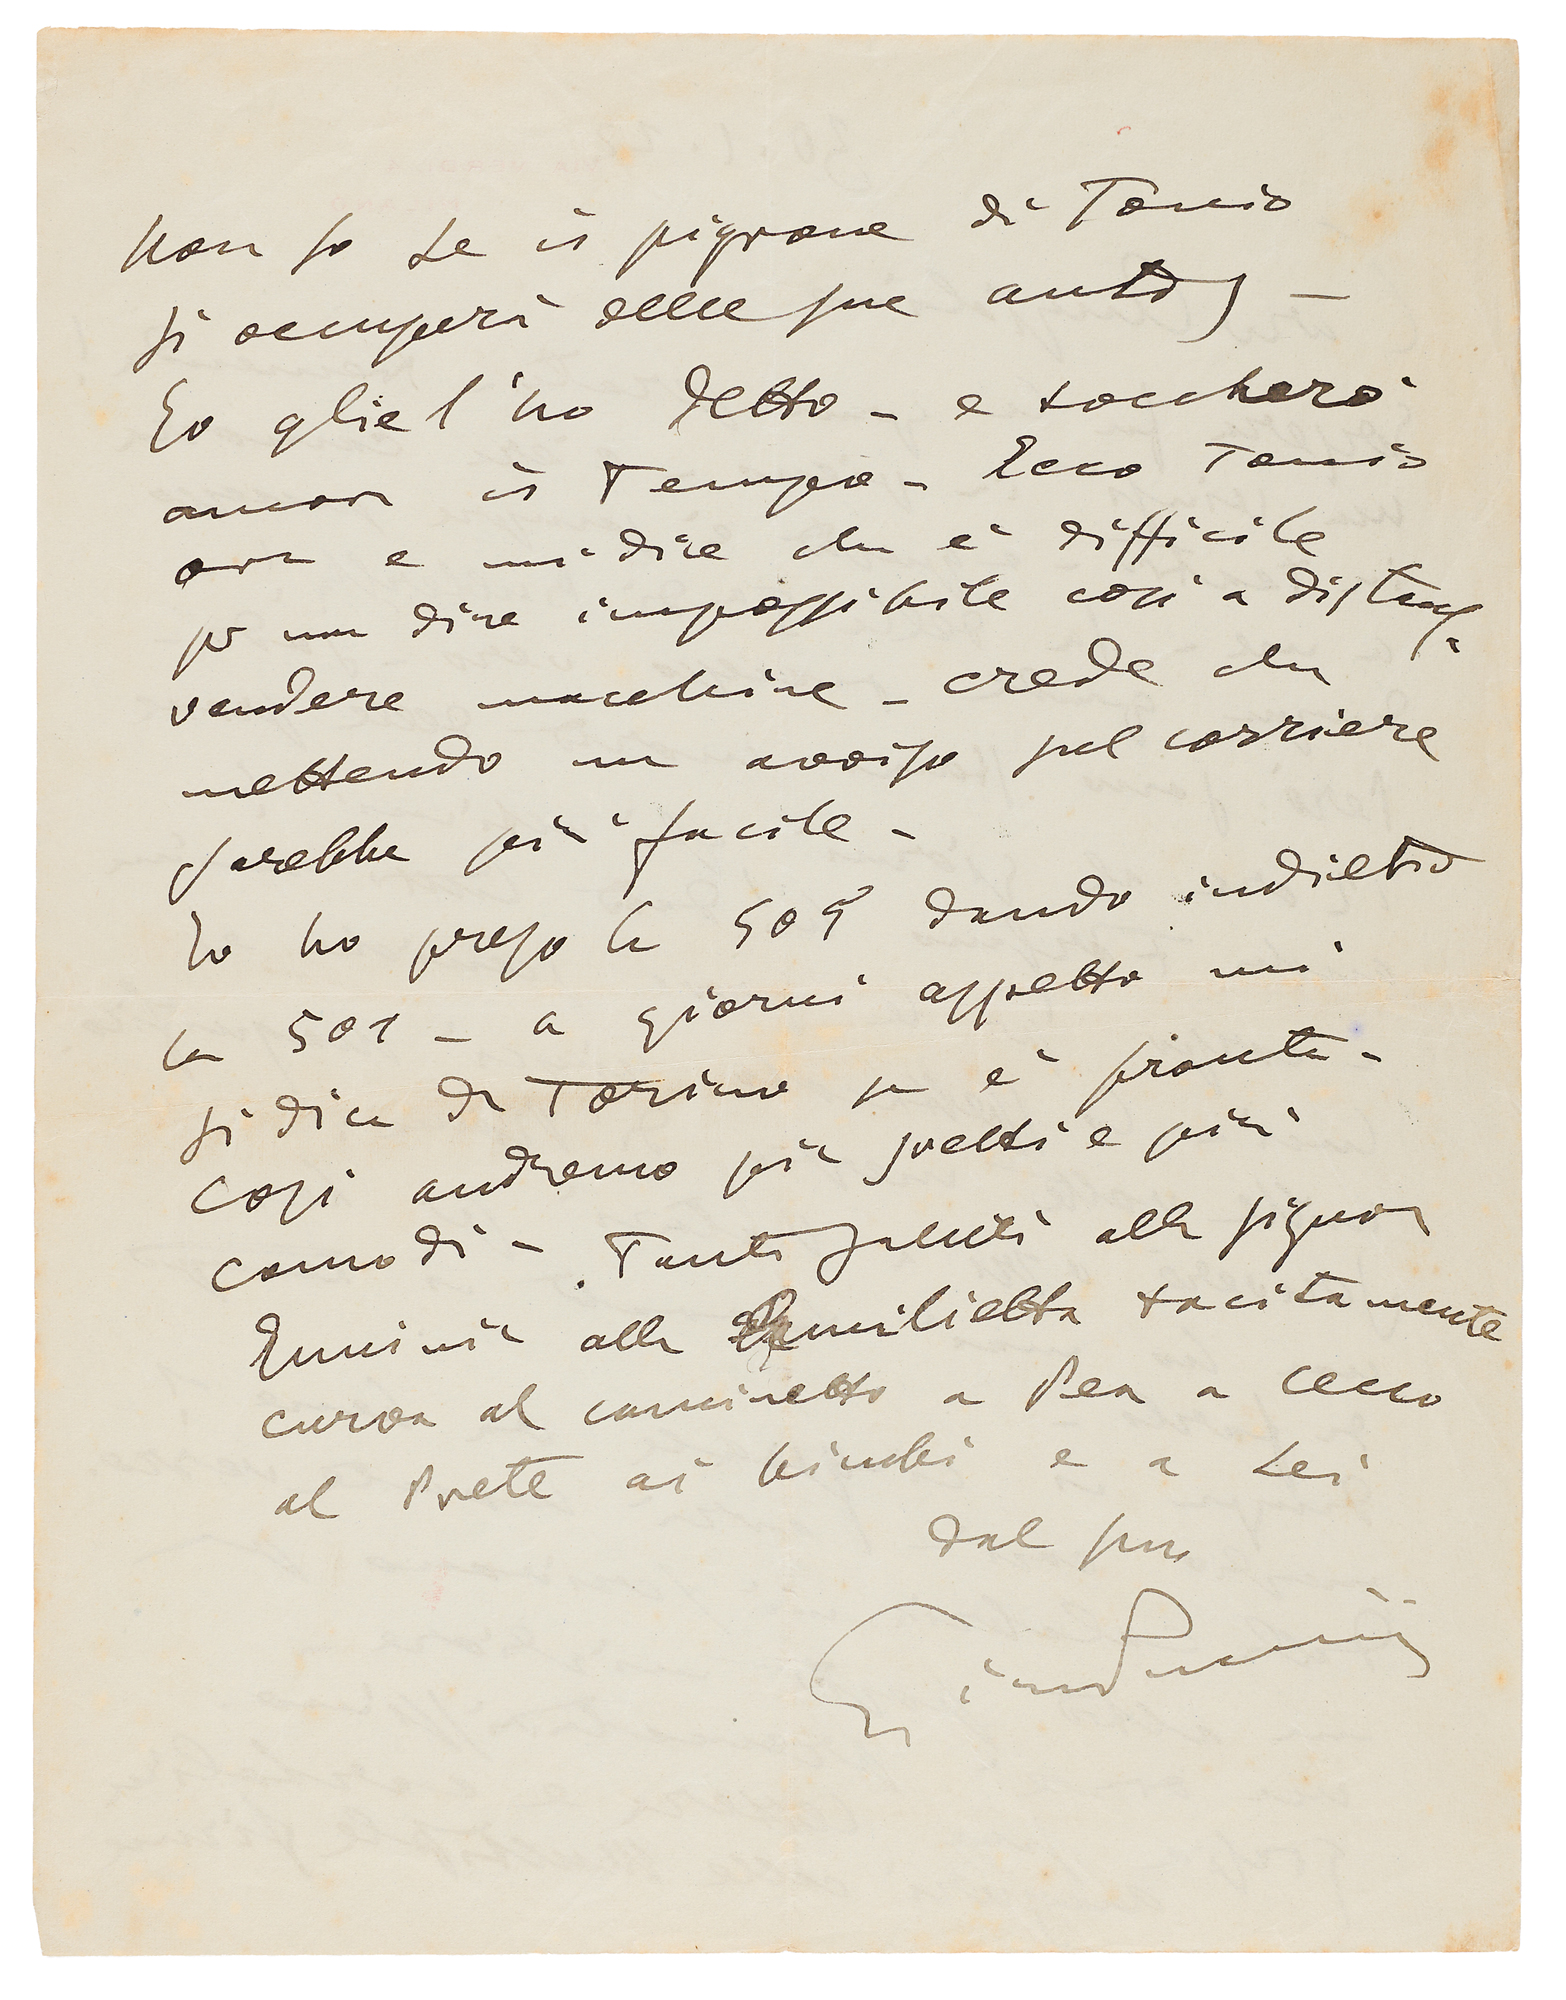 Non so se il pigrone di Tonio
si occuperà delle sue auto –
Io gliel'ho detto – e toccherò
ancor il tempo – Ecco Tonio
ora e mi dice che è difficile
per non dire impossibile così a distanza
vendere macchine – crede che
mettendo un avviso sul corriere
sarebbe più facile –
Io ho preso la 509 dando indietro
la 501 – a giorni aspetto mi
si dica da Torino se è pronta –
Così andremo più svelti e più
comodi – Tanti saluti alla signora
Erminia alla Emilietta tacitamente
curva al caminetto a Pea a Cecco
al Prete ai bimbi e a Lei
dal suo